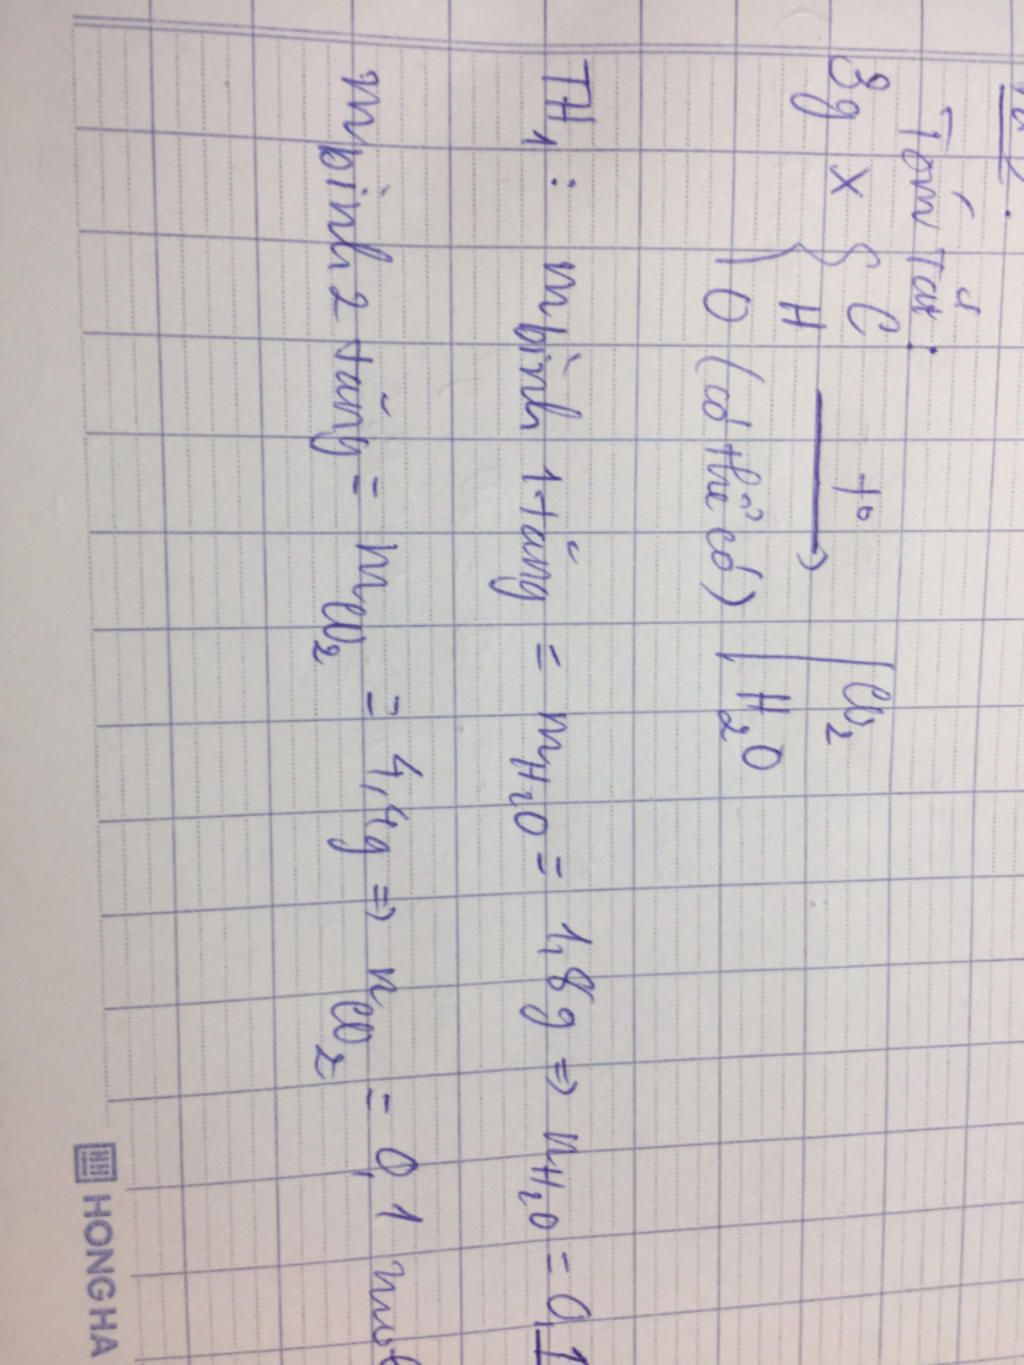 Tóm Tắt:
3g X { C
H
O (có thể có)
t°
→
CO2
H2O
TH1: mbình 1 tăng = mH2O = 1,8g => nH2O = 0,1
mbình 2 tăng = mCO2 = 4,4g => nCO2 = 0,1 mol
HONG HA